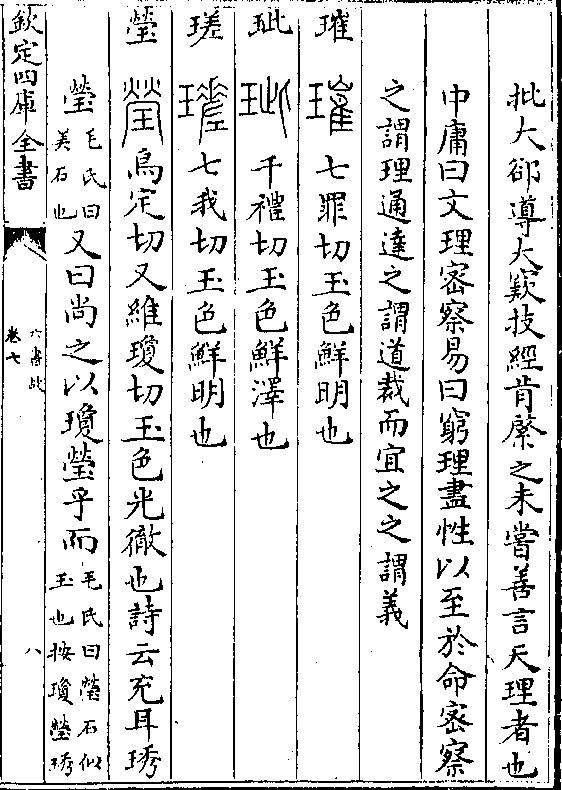 批大郤導大窽技經肯綮之未嘗善言天理者也
中庸曰文理宻察易曰窮理盡性以至於命宻察
之謂理通達之謂道裁而宜之之謂義
璀 璀 七罪切玉色鮮明也
玼 玼 千禮切玉色鮮澤也
瑳 瑳 七我切玉色鮮明也
瑩 瑩 烏定切又維瓊切玉色光徹也詩云充耳琇
瑩毛氏曰美石也又曰尚之以瓊瑩乎而毛氏曰瑩石似玉也按瓊瑩琇
欽定四庫全書
六書故
卷七
八